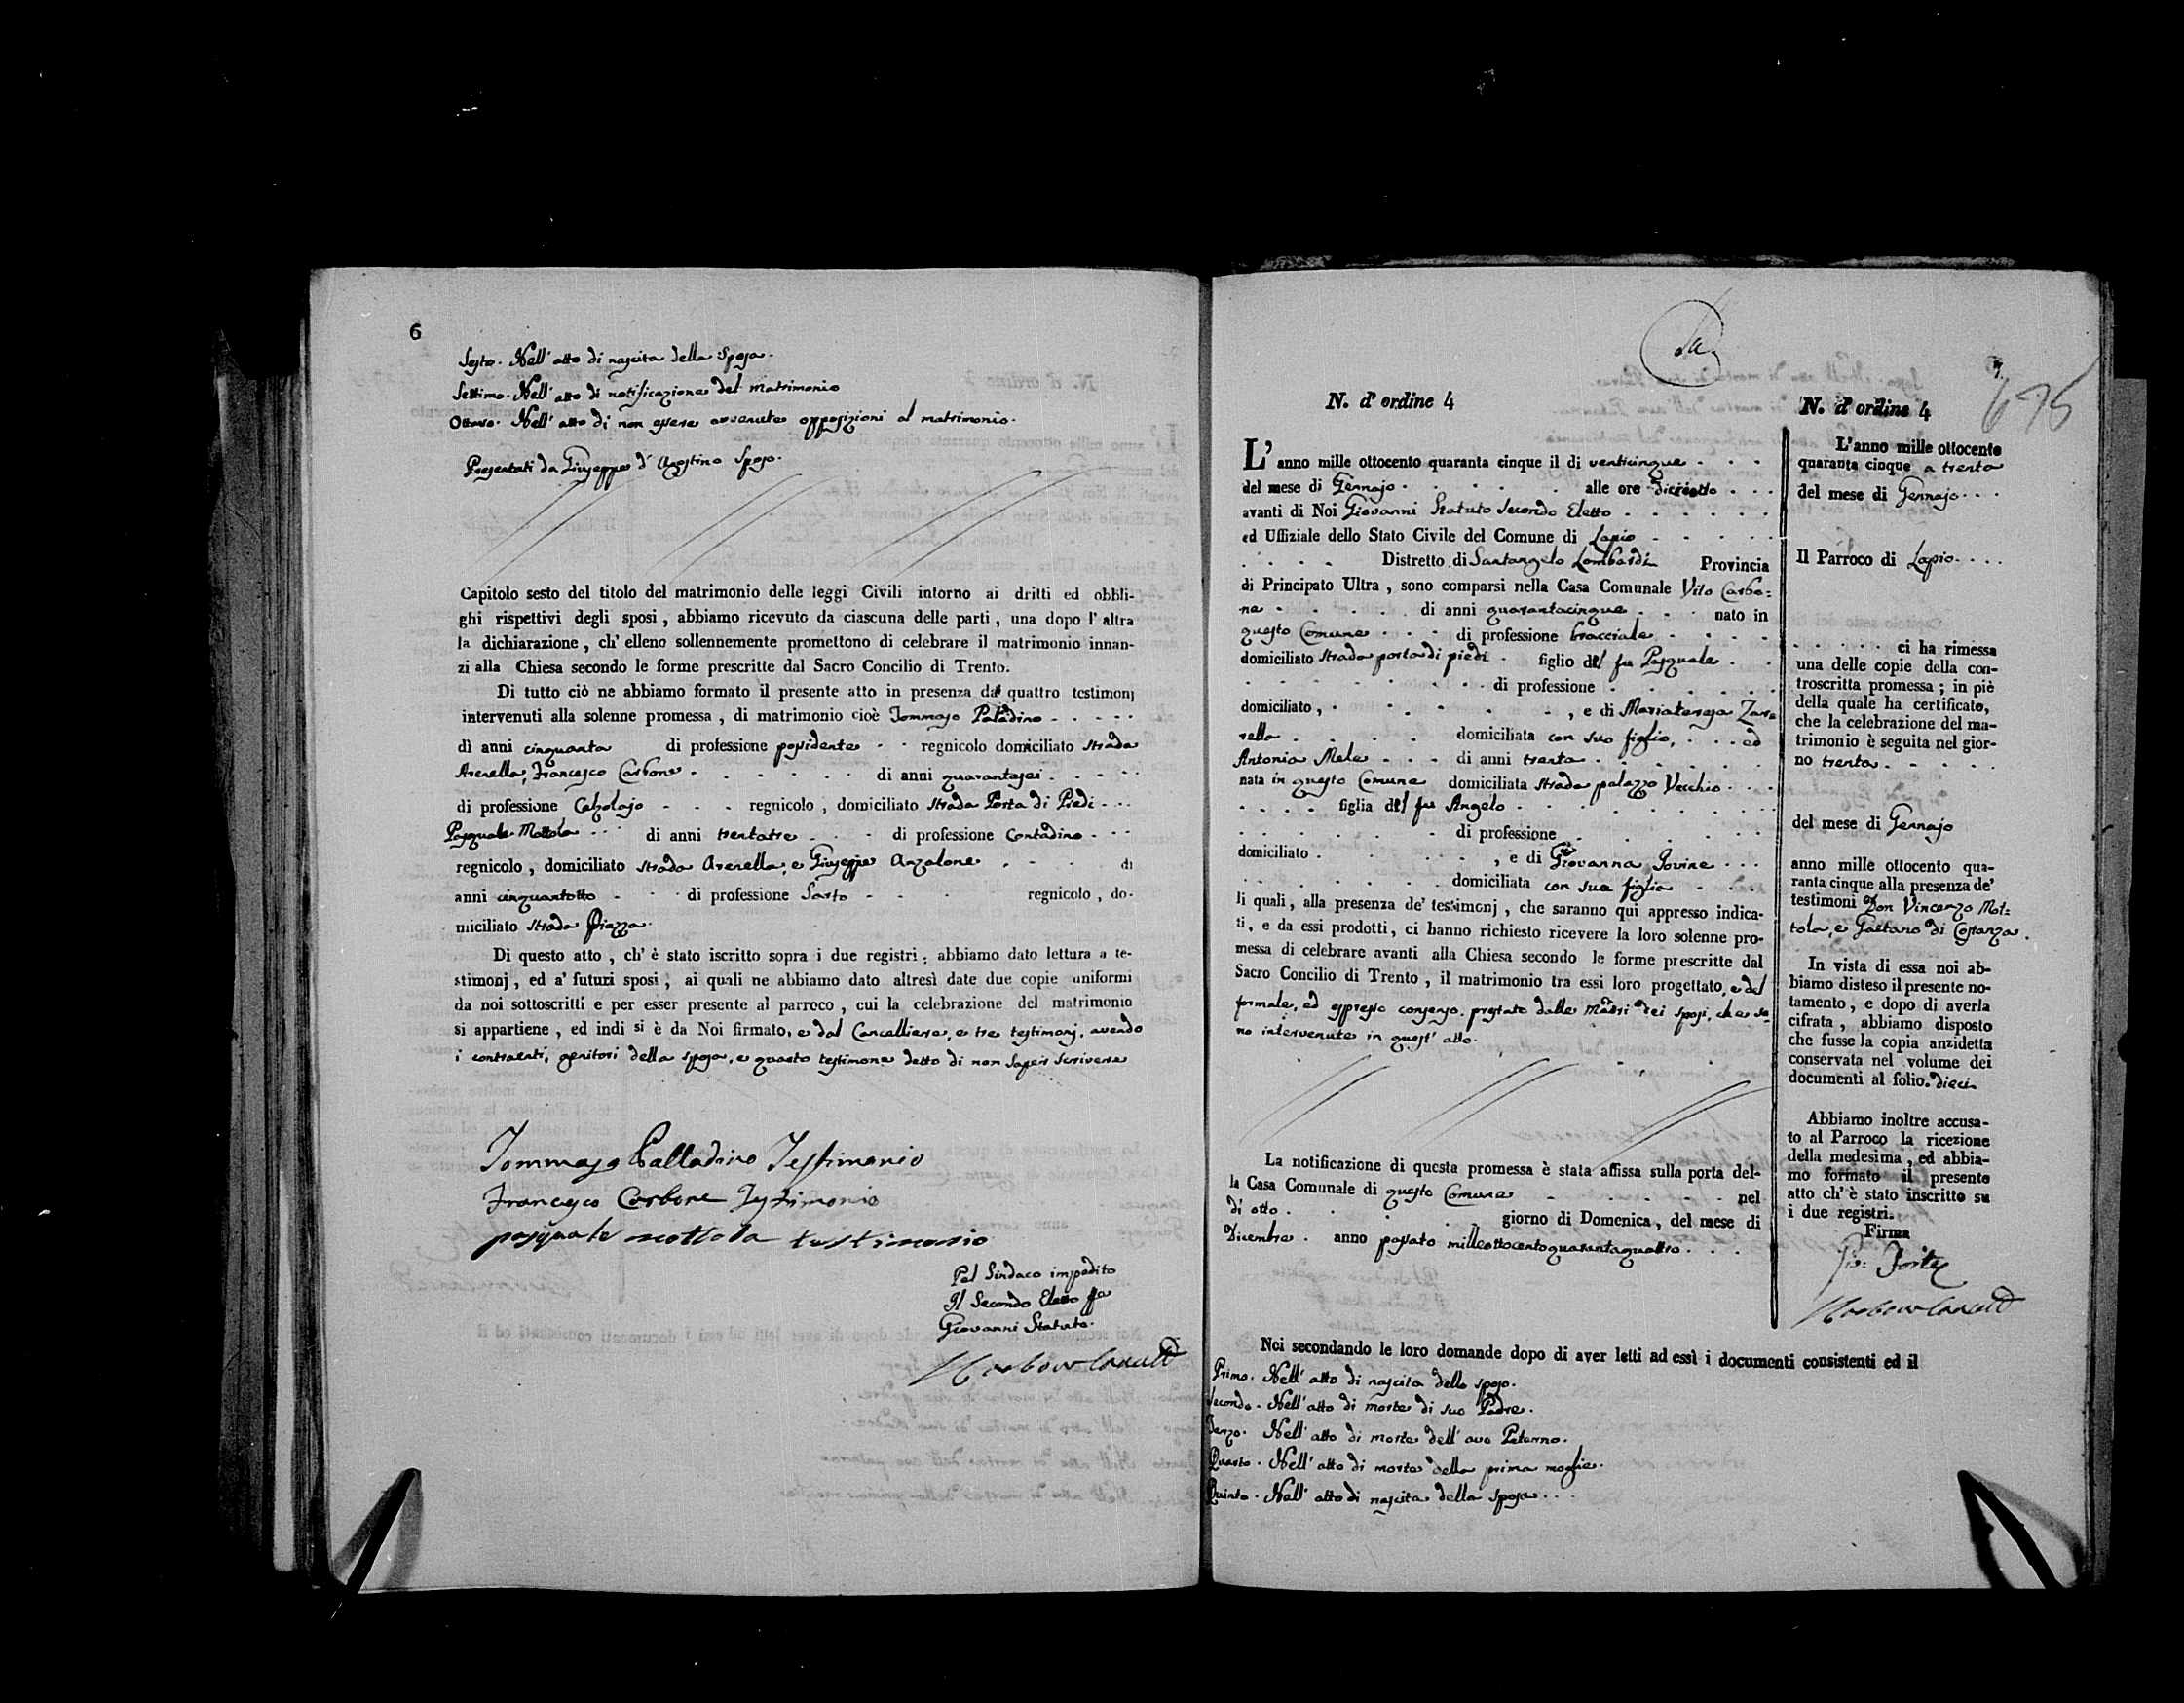 6
Sesto. Nell' atto di nascita della Sposa.
Settimo. Nell' atto di notificazione del matrimonio
Ottavo. Nell' atto di non essere avvenute opposizioni al matrimonio.
Presentati da Giuseppe d' Agostino Sposo.
Capitolo sesto del titolo del matrimonio delle leggi Civili intorno ai dritti ed obbli-
ghi rispettivi degli sposi, abbiamo ricevuto da ciascuna delle parti, una dopo l' altra
la dichiarazione, ch' elleno sollennemente promettono di celebrare il matrimonio innan-
zi alla Chiesa secondo le forme prescritte dal Sacro Concilio di Trento.
Di tutto ciò ne abbiamo formato il presente atto in presenza di quattro testimonj
intervenuti alla solenne promessa, di matrimonio cioè Tommaso Paladino
di anni cinquanta di professione possidente regnicolo domiciliato strada
Arenella, Francesco Carbone di anni quarantasei
di professione Calzolajo regnicolo, domiciliato strada Porta di Piedi
Pasquale Mottola di anni trentatre di professione Contadino
regnicolo, domiciliato strada Arenella, e Giuseppe Anzalone di
anni cinquantotto di professione Sarto regnicolo, do-
miciliato strada Piazza.
Di questo atto, ch' è stato iscritto sopra i due registri: abbiamo dato lettura a te-
stimonj, ed a' futuri sposi, ai quali ne abbiamo dato altresì date due copie uniformi
da noi sottoscritti e per esser presente al parroco, cui la celebrazione del matrimonio
si appartiene, ed indi si è da Noi firmato, e dal Cancelliere, e tre testimonj, avendo
i contraenti, genitori della sposa, e quarto testimone detto di non saper scrivere
Tommaso Palladino Testimonio
Francesco Carbone Testimonio
pasquale mottola testimonio
Pel Sindaco impedito
Il Secondo Eletto ff
Giovanni Statuto.
7.
675
N. d' ordine 4
L' anno mille ottocento quaranta cinque il di venticinque
del mese di Gennajo alle ore diciotto
avanti di Noi Giovanni Statuto Secondo Eletto
ed Uffiziale dello Stato Civile del Comune di Lapio
Distretto di Santangelo Lombardi Provincia
di Principato Ultra, sono comparsi nella Casa Comunale Vito Carbo=
ne di anni quarantacinque nato in
questo Comune di professione bracciale
domiciliato strada porta di piedi figlio del fu Pasquale
di professione
domiciliato, , e di Mariateresa Zar
rella domiciliata con suo figlio, ed
Antonia Mele di anni trenta
nata in questo Comune domiciliata strada palazzo Vecchio
figlia del fu Angelo
di professione
domiciliato , e di Giovanna Iovine
domiciliata con sua figlia
li quali, alla presenza de' testimonj, che saranno qui appresso indica-
ti, e da essi prodotti, ci hanno richiesto ricevere la loro solenne pro-
messa di celebrare avanti alla Chiesa secondo le forme prescritte dal
Sacro Concilio di Trento, il matrimonio tra essi loro progettato, e del
formale, ed espresso consenso prestato dalle madri dei sposi, che so
no intervenute in quest' atto.
La notificazione di questa promessa è stata affissa sulla porta del-
la Casa Comunale di questo Comune nel
dì otto giorno di Domenica, del mese di
Dicembre anno passato milleottocentoquarantaquattro
Noi secondando le loro domande dopo di aver letti ad essi i documenti consistenti ed il
Primo. Nell' atto di nascita dello sposo.
Secondo. Nell' atto di morte di suo Padre.
Terzo. Nell' atto di morte dell' avo Paterno.
Quarto. Nell' atto di morte della prima moglie.
Quinto. Nell' atto di nascita della sposa
N. d' ordine 4
L'anno mille ottocento
quaranta cinque a trenta
del mese di Gennajo
Il Parroco di Lapio
ci ha rimessa
una delle copie della con-
troscritta promessa; in piè
della quale ha certificato,
che la celebrazione del ma-
trimonio è seguita nel gior-
no trenta
del mese di Gennajo
anno mille ottocento qua-
ranta cinque alla presenza de'
testimoni Don Vincenzo Mot=
tola, e Gaetano di Costanza.
In vista di essa noi ab-
biamo disteso il presente no-
tamento, e dopo di averla
cifrata, abbiamo disposto
che fusse la copia anzidetta
conservata nel volume dei
documenti al folio dieci
Abbiamo inoltre accusa-
to al Parroco la ricezione
della medesima, ed abbia-
mo formato il presente
atto ch' è stato inscritto su
i due registri.
Firma